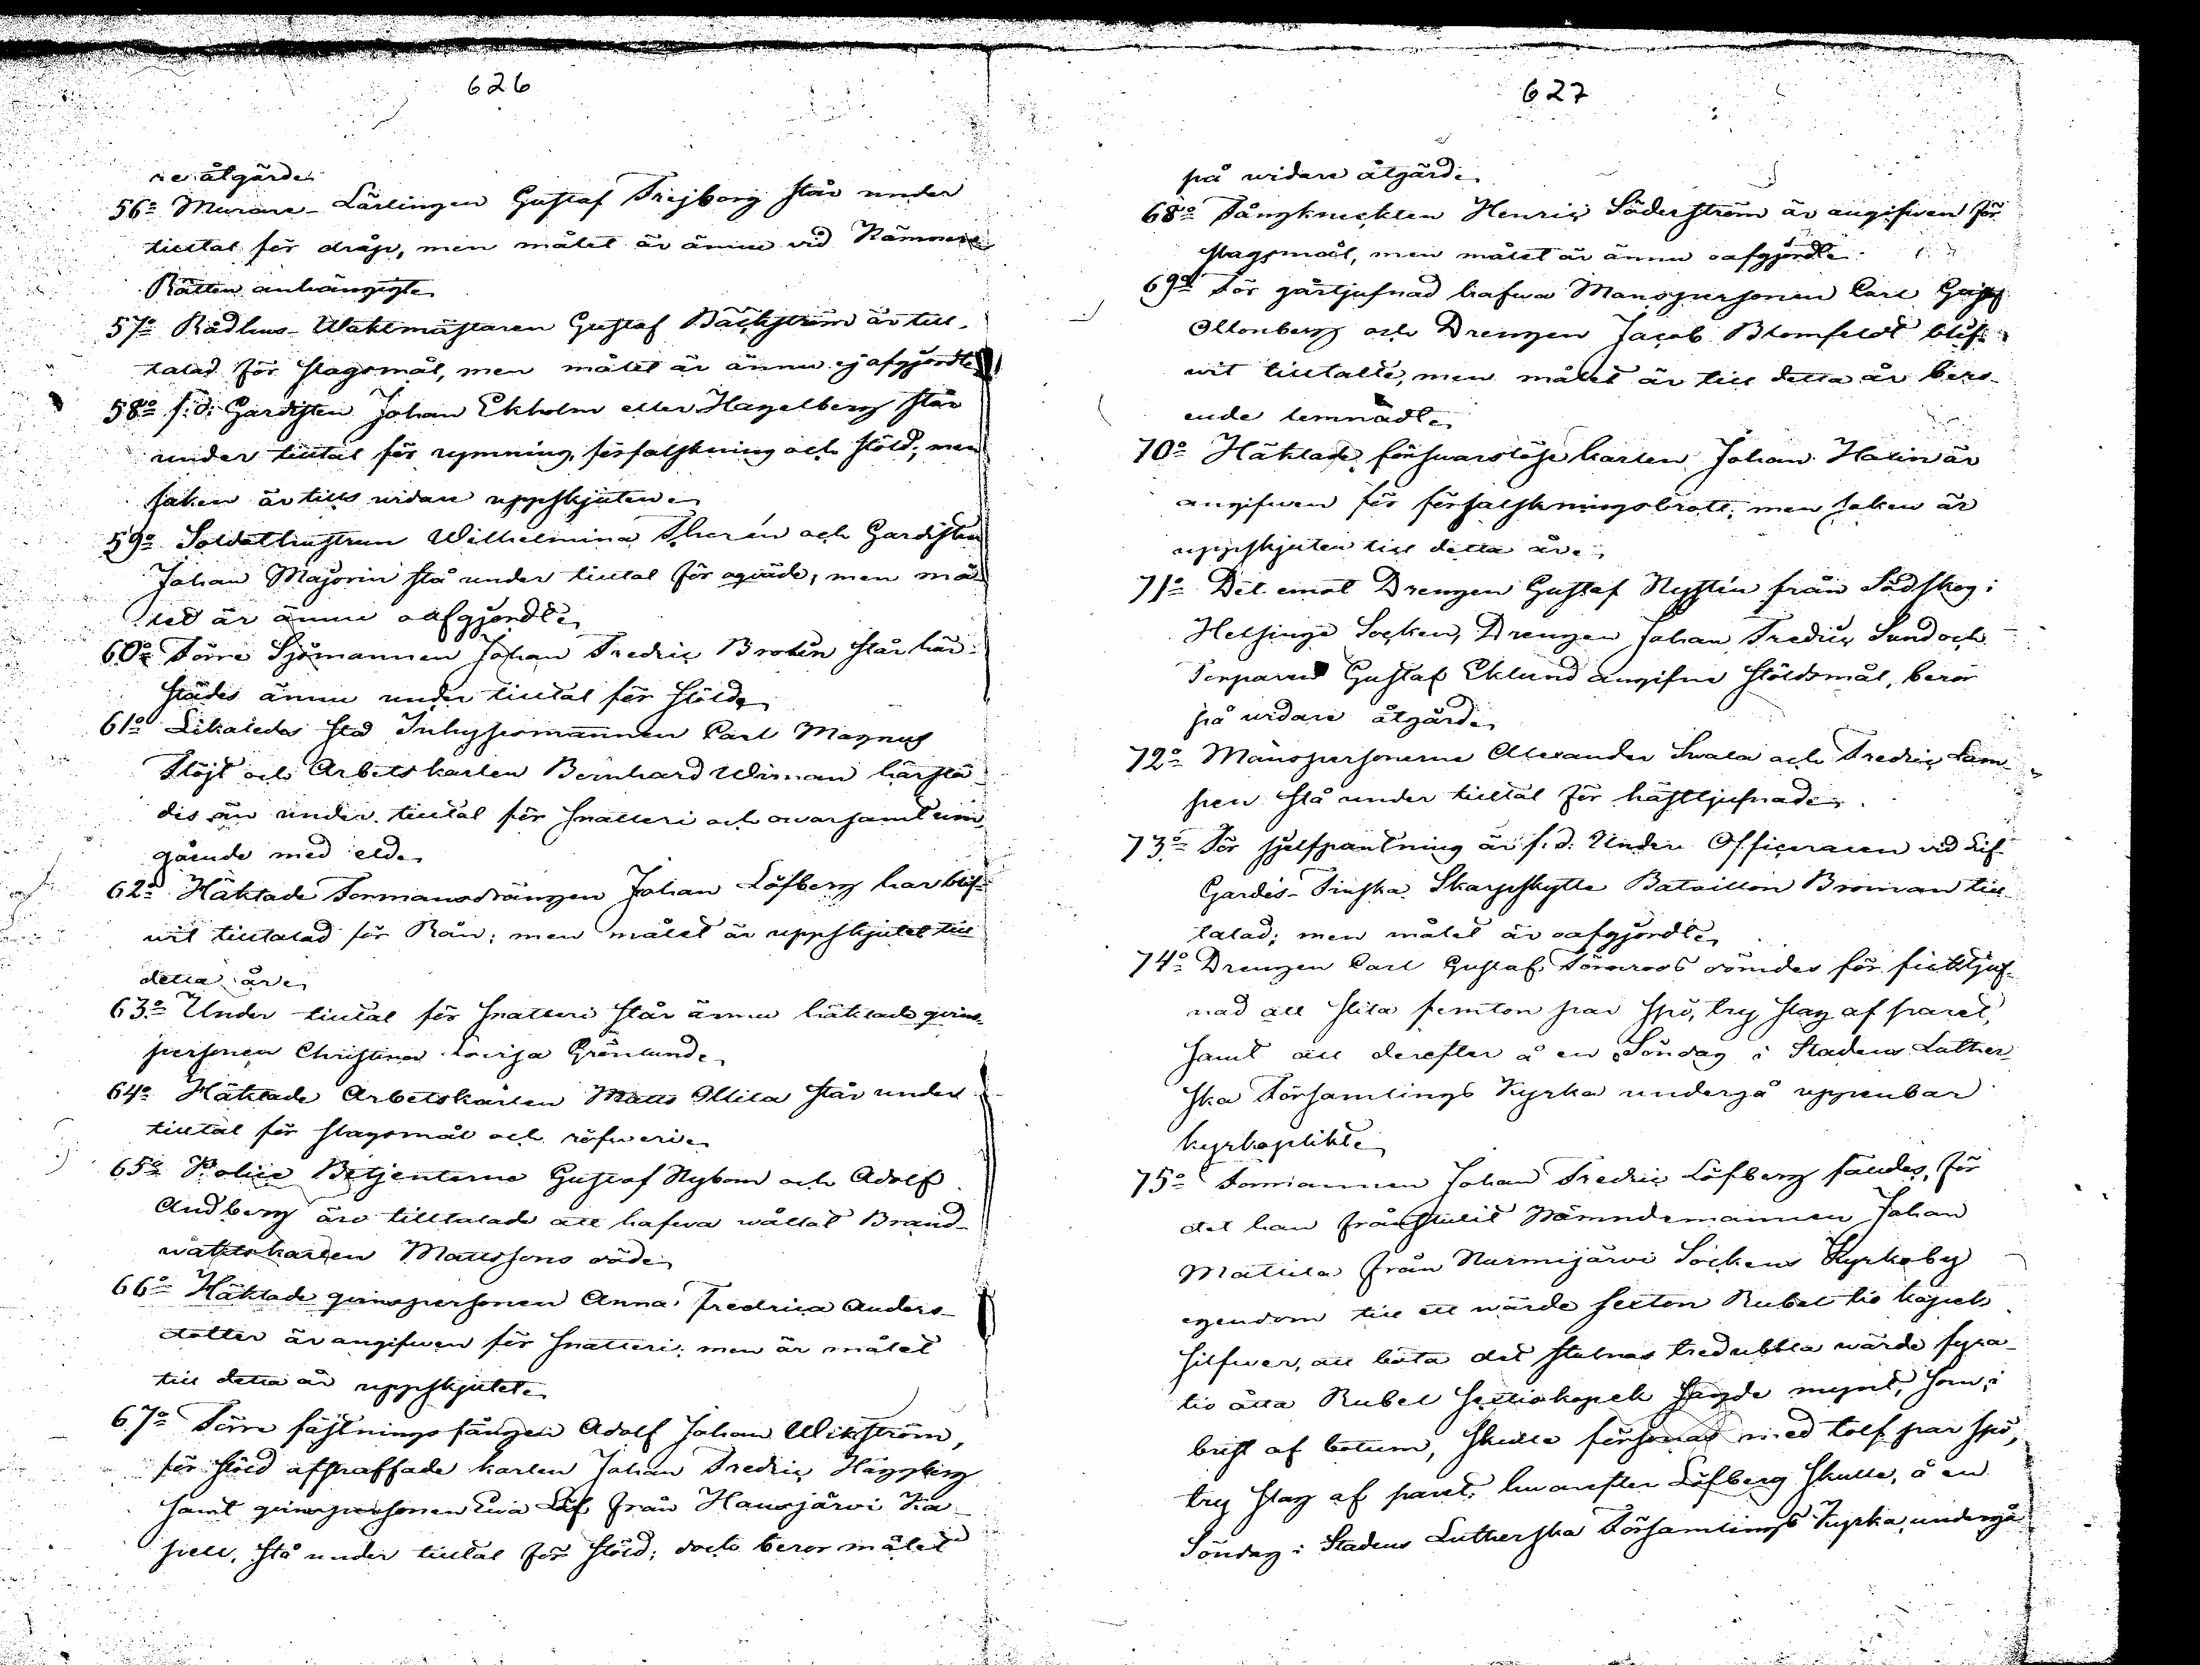 626
re åtgärd.
56:o Murare-Lärlingen Gustaf Frejborg står under
tilltal för dråp, men målet är ännu vid Kämners
Rätten anhängigt.
57:o Rådhus-Waktmästaren Gustaf Bäckström är till-
talad för slagsmål, men målet är ännu ej afgjordt.
58:o f: d: Gardisten Johan Ekholm eller Hagelberg står
under tilltal för rymning, förfalskning och stöld; men
saken är tills vidare uppskjuten.
59:o Soldathustrun Wilhelmina Therén och Gardisten
Johan Majorin stå under tilltal för oqväde, men må-
let är ännu oafgjordt.
60:o Förre Sjömannen Johan Fredric Brolin står här-
städes ännu under tilltal för stöld.
61:o Likaledes stå Inhysesmannen Carl Magnus
Slöjt och Arbetskarlen Bernhard Wiman härstä-
des än under tilltal för snatteri och ovarsamt um-
gående med eld.
62:o Häktade Formansdrängen Johan Löfberg har blif-
wit tilltalad för Rån; men målet är uppskjutet till
detta år.
63:o Under tilltal för snatteri står ännu häktade qvins-
personen Christina Lovisa Grönlund.
64:o Häktade Arbetskarlen Matts Ollila står under
tilltal för slagsmål och röfweri.
65:o Police Betjenterne Gustaf Nybom och Adolf
Andberg äro tilltalade att hafwa wållat Brand-
waktskarlen Mattssons död.
66:o Häktade qvinspersonen Anna Fredrica Anders-
dotter är angifwen för snatteri; men är målet
till detta år uppskjutet.
67:o Förre fästningsfången Adolf Johan Wikström,
för stöld afstraffade karlen Johan Fredric Häggberg
samt qvinspersonen Ewa Löf från Hausjärvi Ka-
pell, stå under tilltal för stöld; dock beror målet
627
på widare åtgärd.
68:o Fångknekten Henric Söderström är angifwen för
slagsmål, men målet är ännu oafgjordt.
69:o För gårtjufnad hafwa Manspersonen Carl Gustaf
Ollonberg och Drengen Jacob Blomfeldt blif-
wit tilltalte, men målet är till detta år bero-
ende lemnadt.
70:o Häktade försvarslöse karlen Johan Halin är
angifwen för förfalskningsbrott; men saken är
uppskjuten till detta år.
71:o Det emot Drengen Gustaf Nystén från Sådskog i
Helsinge Socken, Drengen Johan Fredric Sund och
Gustaf Eklund angifne stöldsmål, beror
på widare åtgärd.
72:o Manspersonerne Alexander Swala och Fredric Lam-
pen stå under tilltal för hästtjufnad.
73:o För sjelfpantning är f. d. Under Officeraren vid Lif-
Gardes-Finska Skarpskytte Bataillon Broman till-
talad; men målet är oafgjordt.
74:o Drengen Carl Gustaf Törnroos dömdes för ficktjuf-
nad att slita femton par spö, try slag af paret,
samt att derefter å en Söndag i Stadens Luther-
ska Församlings Kyrka undergå uppenbar
kyrkoplikt.
75:o Formannen Johan Fredric Löfberg fäldes, för
det han frånstulit Nämndemannen Johan
Mattila från Nurmijärvi Sockens Kyrkoby
egendom till ett wärde sexton Rubel tio kopek
silfwer, att böta det stulnas tredubbla wärde fyra-
tio åtta Rubel trettio kopek sagde mynt, som, i
brist af botum, skulle försonas med tolf par spö,
try slag af paret; hwarefter Löfberg skulle, å en
Söndag i Stadens Lutherska Församlings Kyrka, undergå